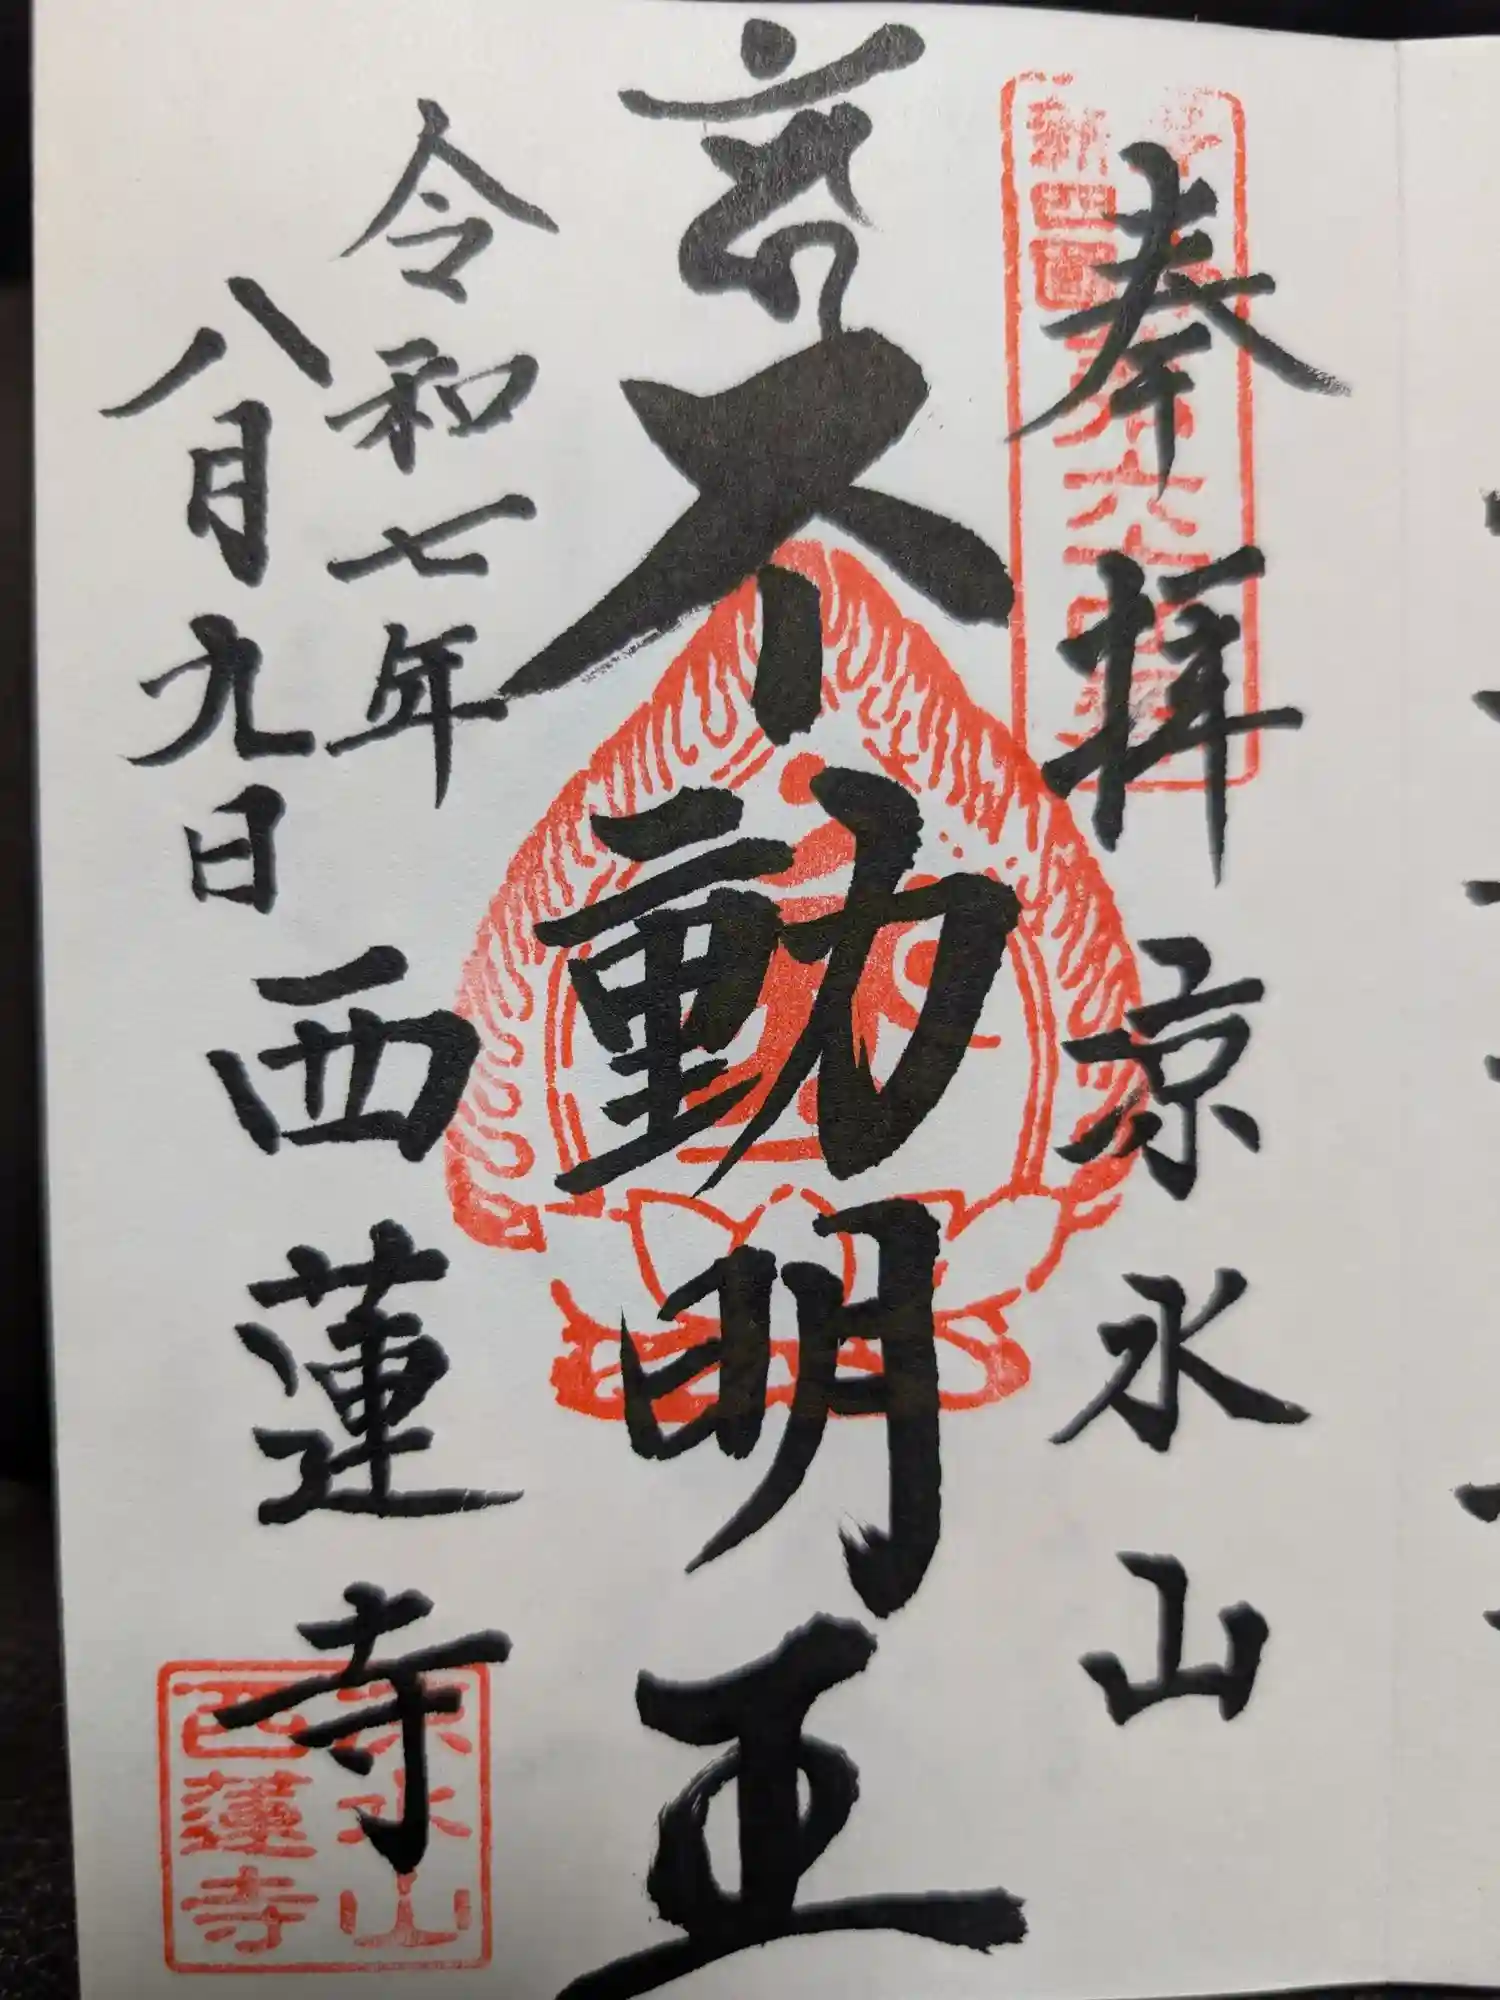 奉拝 京水山
不動明王
令和七年
八月九日
西蓮寺
京水山
西蓮寺